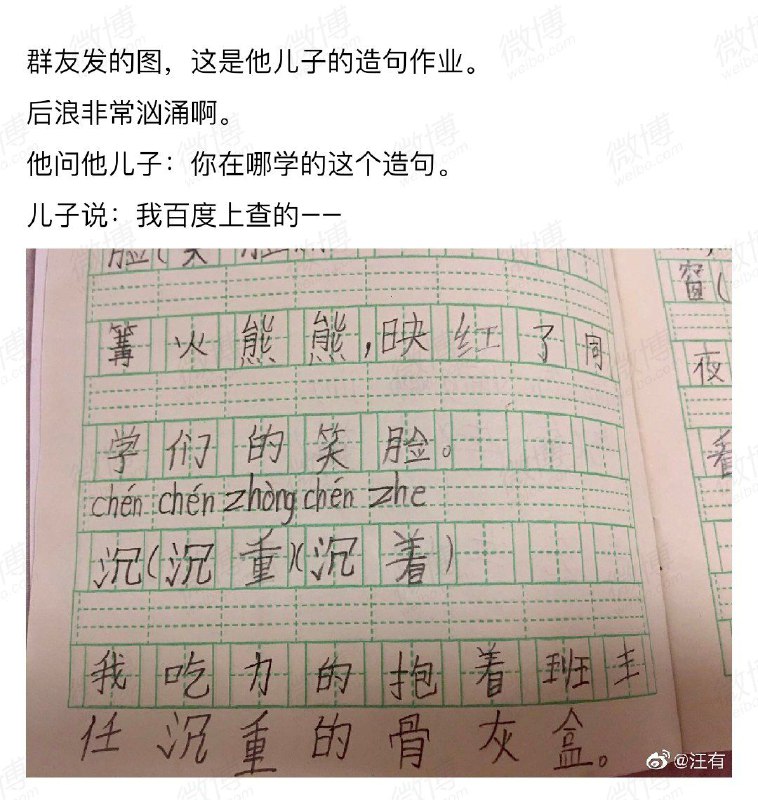 群友发的图，这是他儿子的造句作业。
后浪非常汹涌啊。
他问他儿子：你在哪学的这个造句。
儿子说：我百度上查的——
脸(笑
篝火熊熊,映红了同
学们的笑脸。
chén chén zhòng chén zhe
沉(沉重)(沉着)
我吃力的抱着班主
任沉重的骨灰盒。
窗(
夜
看
@汪有
微博
weibo.com